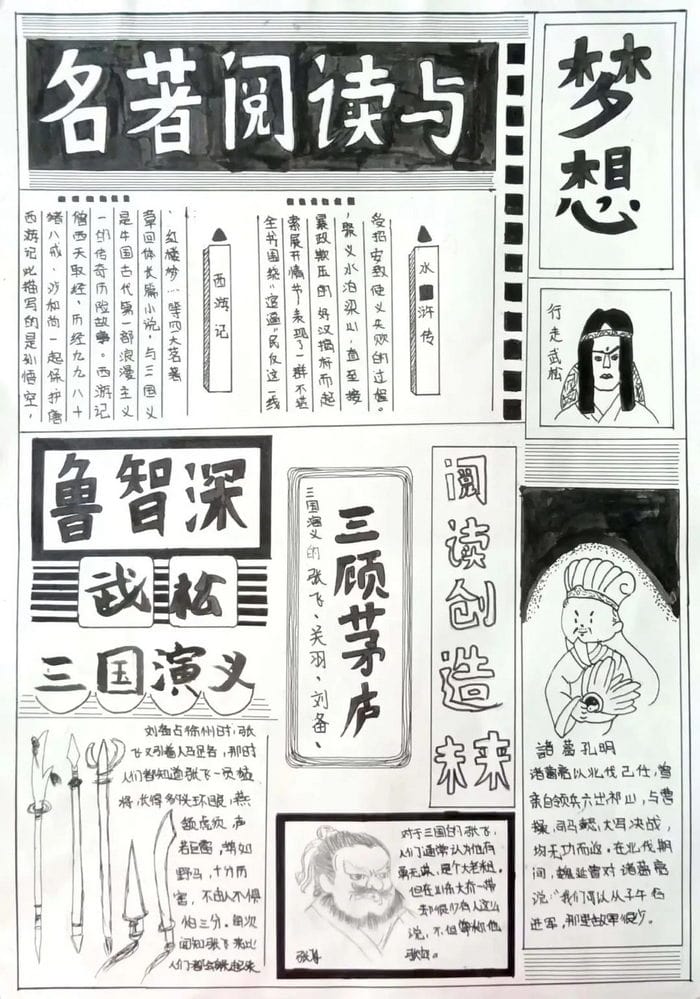 名著阅读与
梦
想
西游记
西游记此描写的是孙悟空，
猪八戒、沙和尚一起保护唐
僧西天取经，历经九九八十
一部传奇历险故事。西游记
是中国古代第一部浪漫主义
章回体长篇小说，与三国义
红楼梦等四大名著
水浒传
全书围绕"逼"民反这一线
索展开情节，表现了一群不
暴政欺压的好汉揭杆而起
聚义水泊梁山，直至接
受招安致使义失败的过程。
行走武松
鲁智深
武松
三国演义
三顾茅庐
三国演义的张飞、关羽、刘备、
阅读创造
未来
諸葛孔明
诸葛亮以北伐己任，曾
亲自领兵六出祁山，与曹
操、司马懿大写决战，
均无功而返。在北伐期
间，魏延曾对诸葛亮
说："我们可以从子午谷
进军，那里敌军很少。
刘备占徐州时，张
飞又引着人马足各，那时
人们都知道张飞一员猛
将，长得多头环眼，燕
颔虎须，声
若巨雷，势如
野马，十分厉
害，不由人不惧
怕三分。每次
闻知张飞来此
人们都会躲起来
对于三国的张飞，
人们通常认为他有
勇无谋，是个大老粗。
但在川东大前一带
却很少有人这么
说，不但
张飞